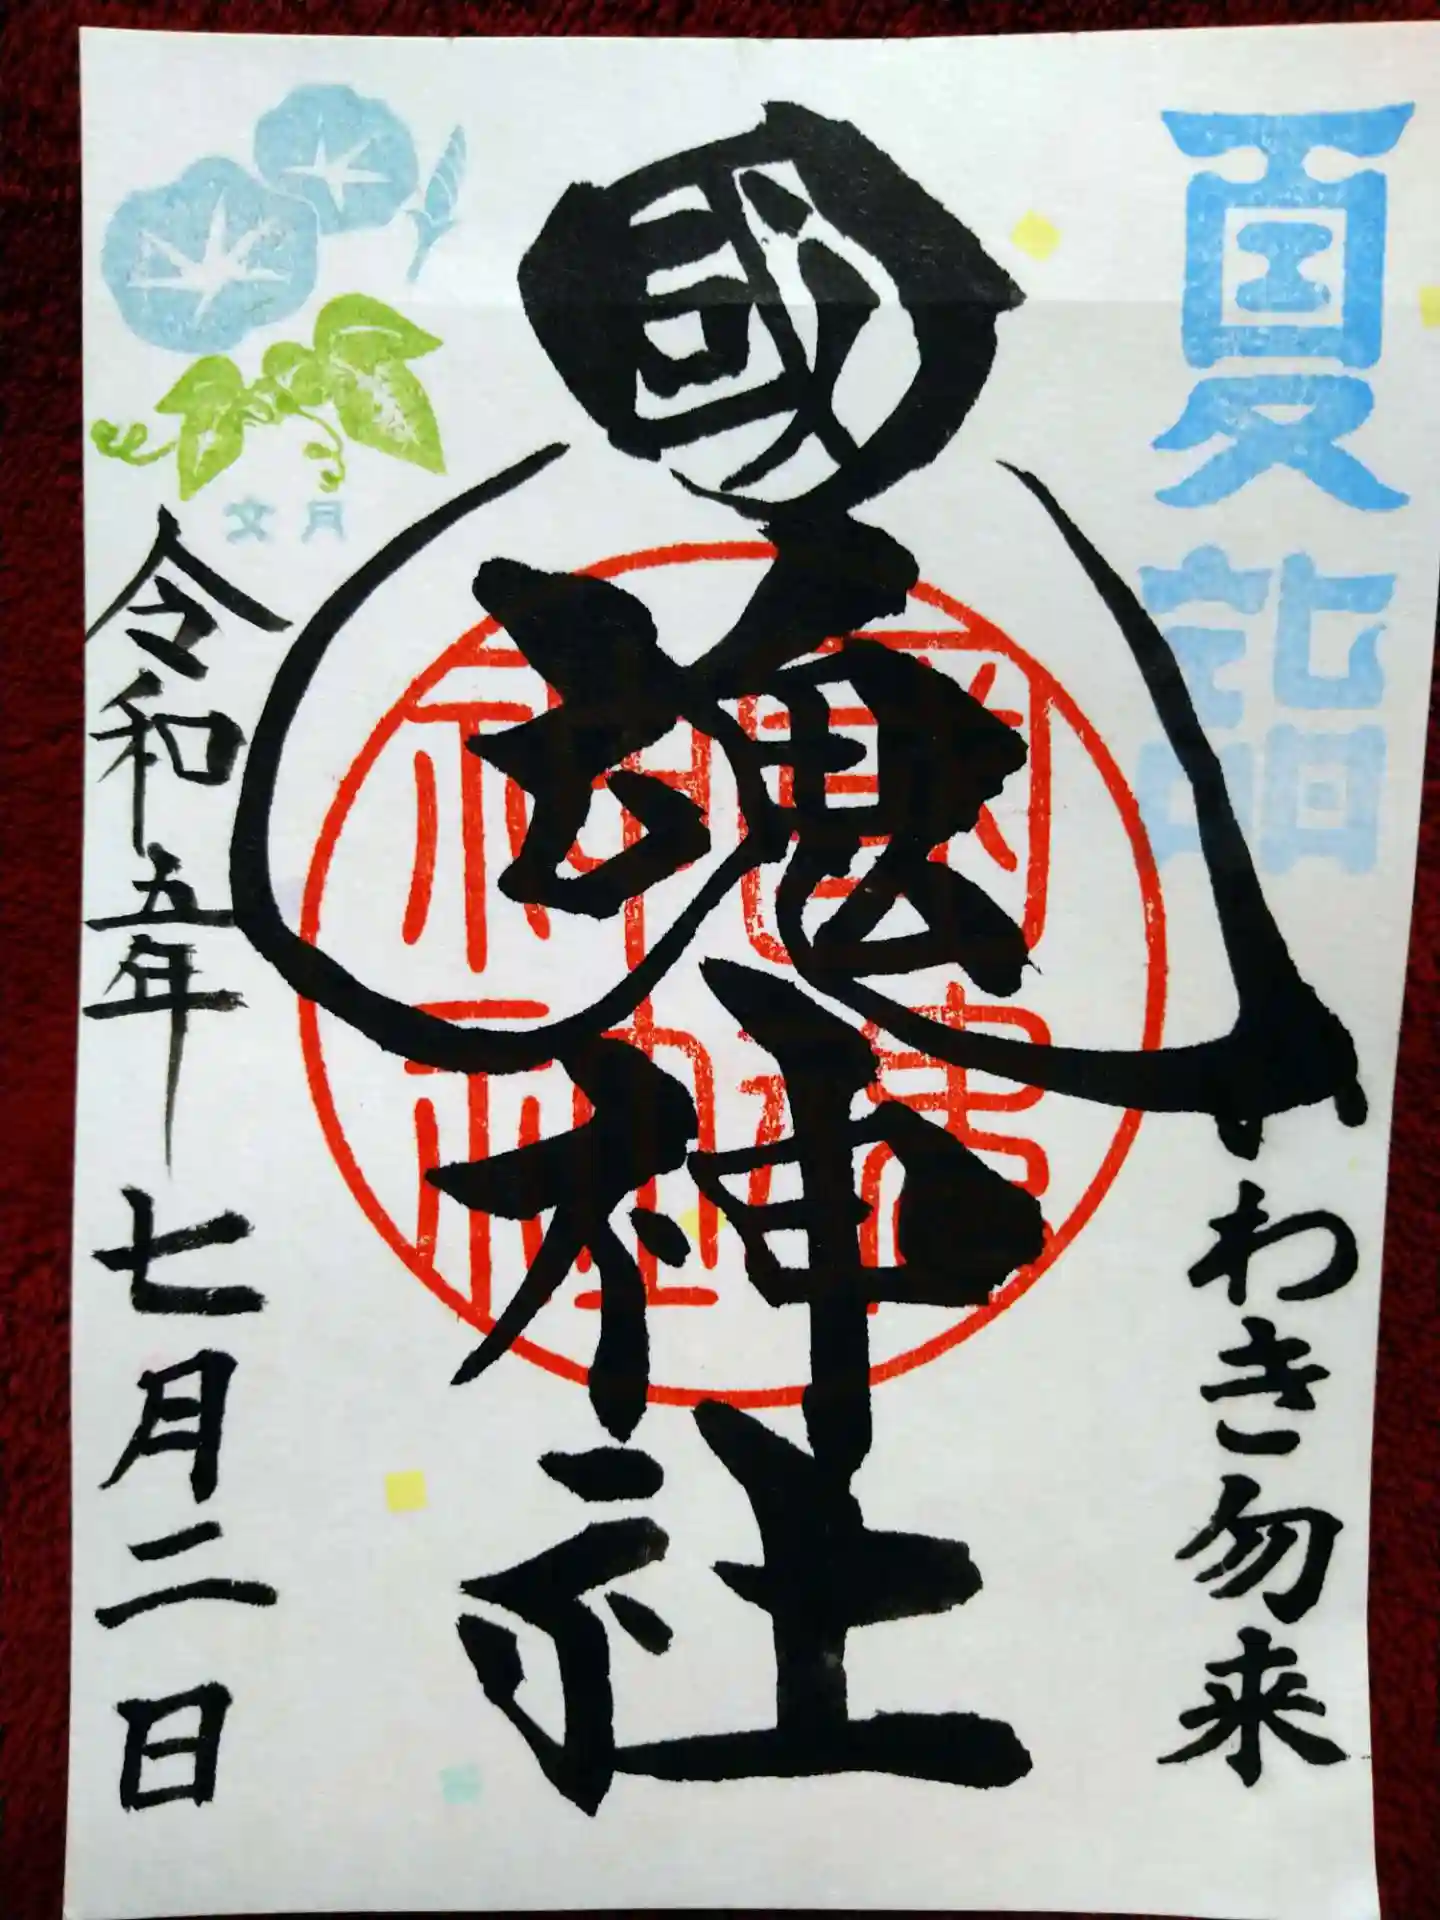 夏詣
いわき勿来
國魂神社
文月
令和五年七月二日